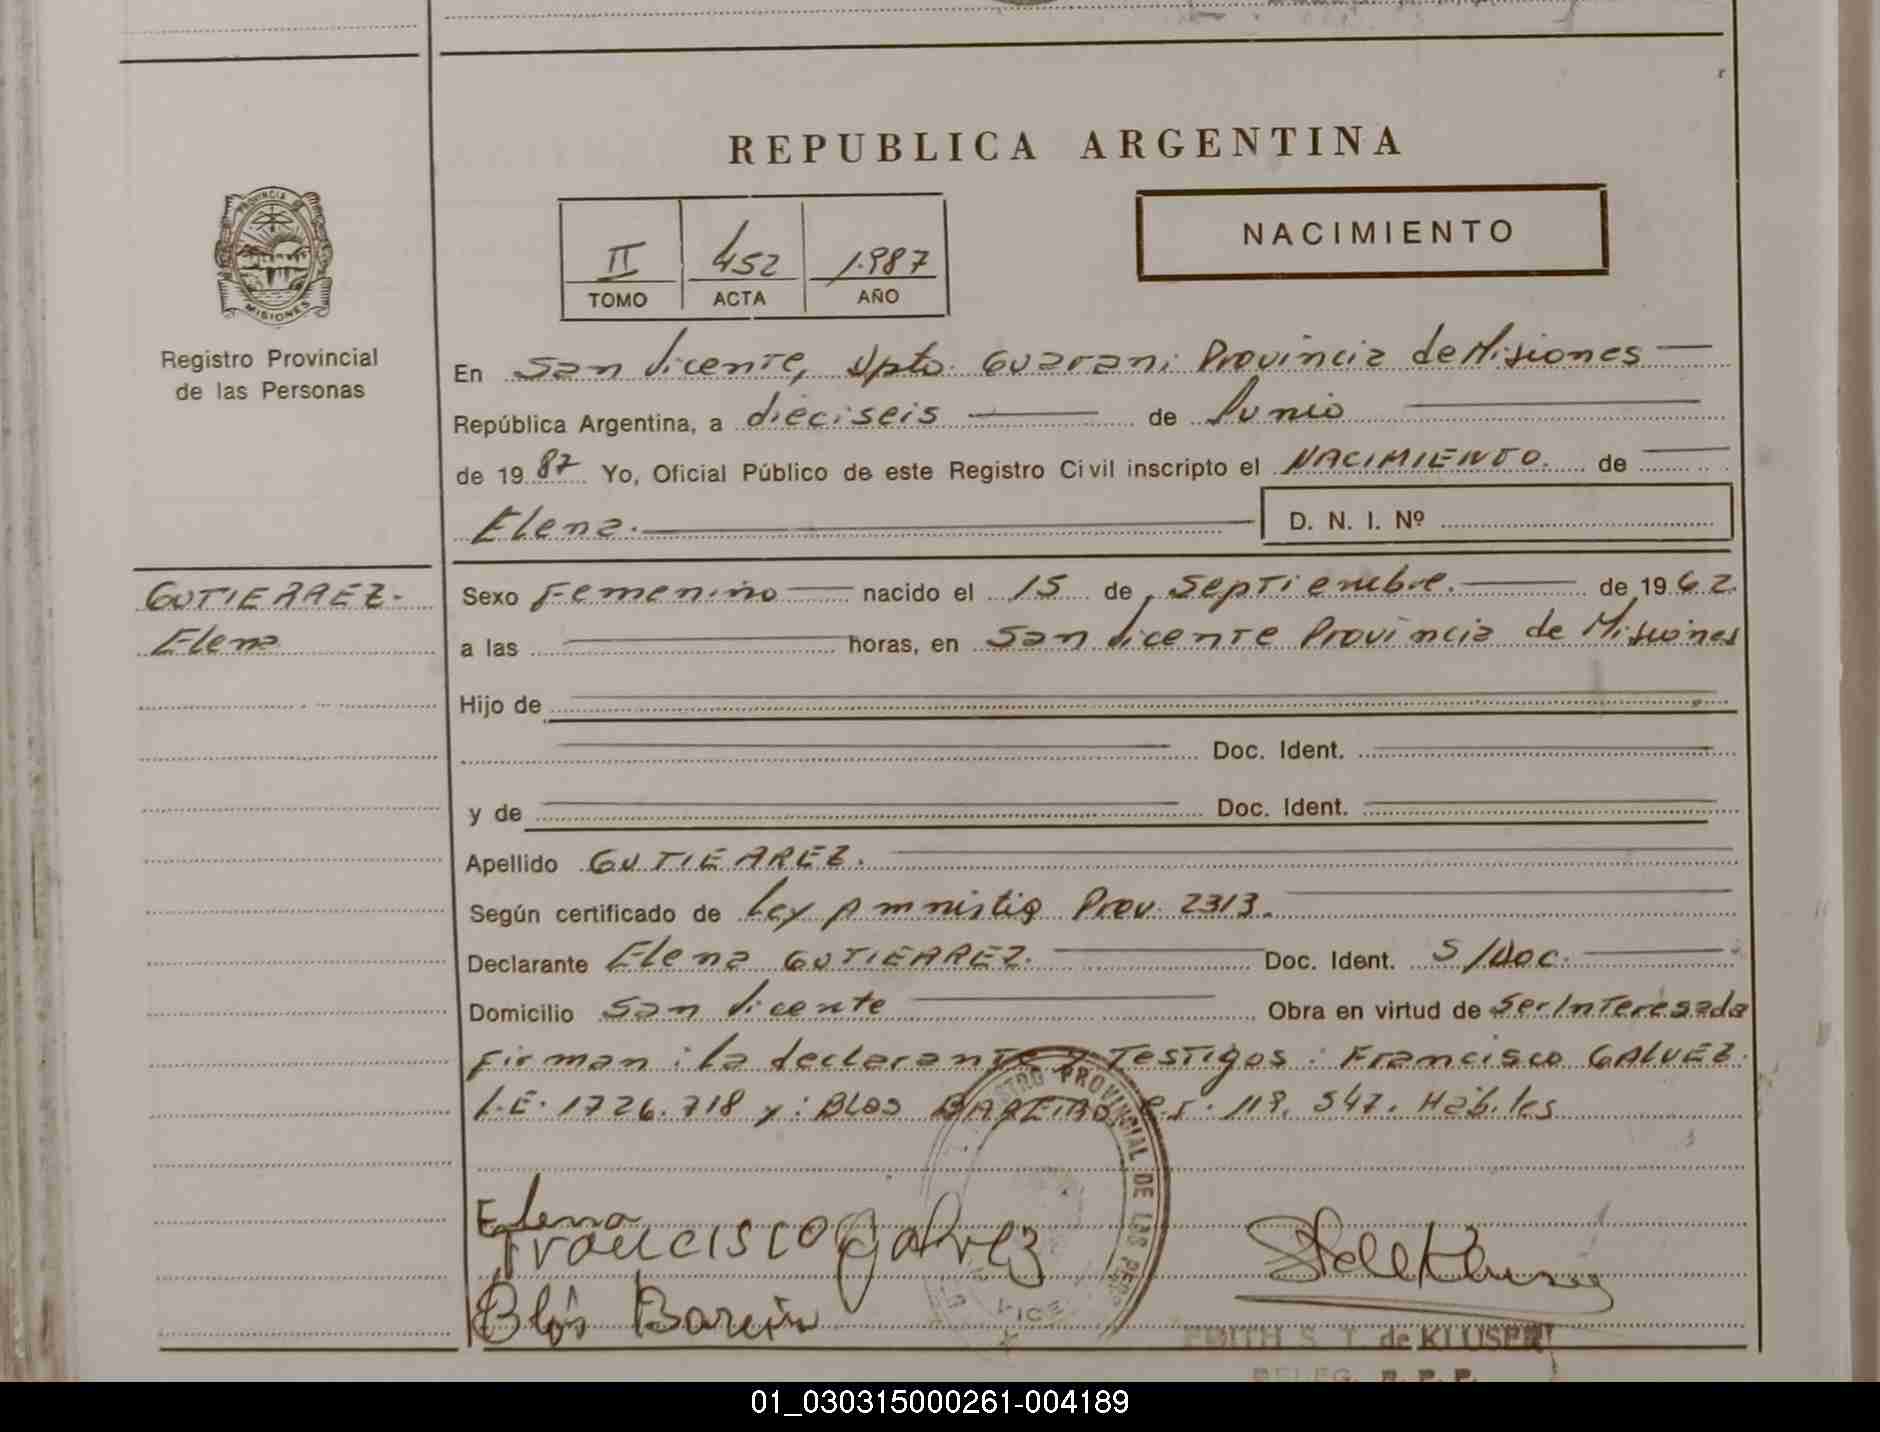 REPUBLICA ARGENTINA
NACIMIENTO
II 452 1.987
TOMO ACTA AÑO
PROVINCIA DE
MISIONES
Registro Provincial
de las Personas
En San Vicente, Dpto. Guarani Provincia de Misiones
República Argentina, a dieciseis de Junio
de 1987 Yo, Oficial Público de este Registro Civil inscripto el NACIMIENTO. de
Elena. D. N. I. Nº
GUTIERREZ.
Elena
Sexo Femenino nacido el 15 de Septiembre. de 1962
a las horas, en San Vicente Provincia de Misiones
Hijo de
Doc. Ident.
y de Doc. Ident.
Apellido GUTIERREZ.
Según certificado de Ley Amnistia Prov. 2313.
Declarante Elena GUTIERREZ. Doc. Ident. S/Doc.
Domicilio San Vicente Obra en virtud de Ser Interesada
Firman: la declarante y Testigos: Francisco GALVEZ.
L.E. 1726.718 y: BLAS BAREIRO C.I. 119.547. Habiles
Elena
Francisco Galvez
Blas Bareiro
REGISTRO PROVINCIAL DE LAS PERS
VICE
EDITH S. T. de KLUSER
DELEG. R. P. P.
01_030315000261-004189